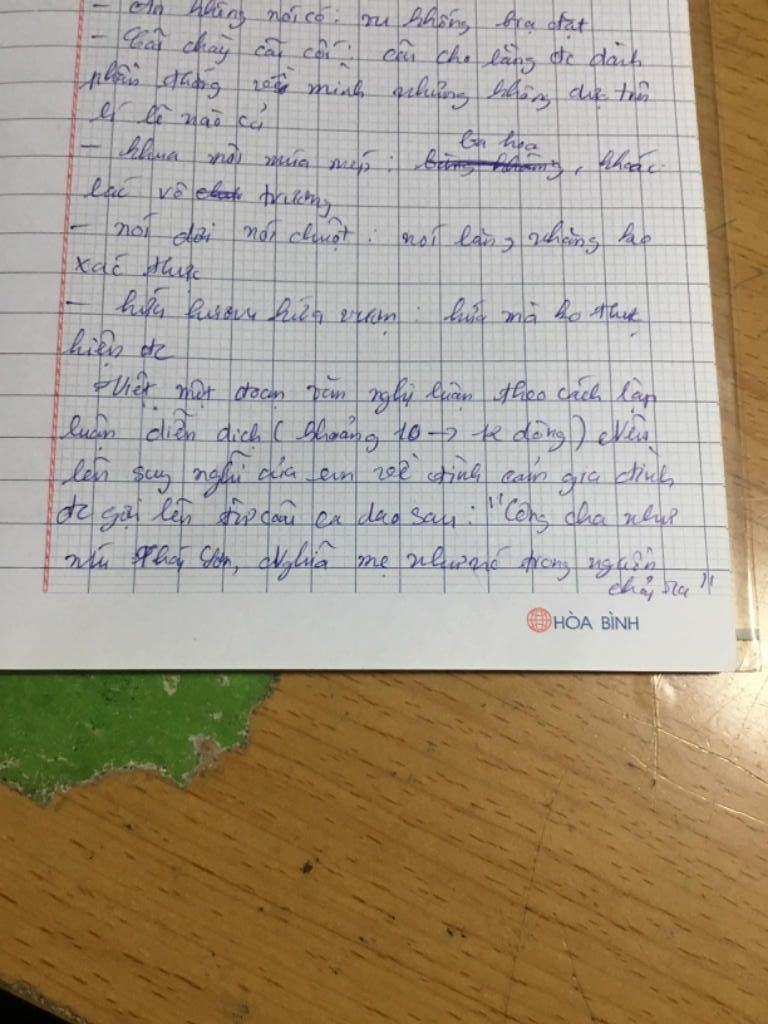 - Ăn không nói có: vu khống bịa đặt
- Cãi chày cãi cối: cãi cho bằng đc dành
phần thắng về mình nhưng không dựa trên
lí lẽ nào cả
- khua môi múa mép: ba hoa, khoác
lác vô trương
- nói dơi nói chuột: nói lăng nhăng ko
xác thực
- hứa hươu hứa vượn: hứa mà ko thực
hiện đc
Viết một đoạn văn nghị luận theo cách lập
luận diễn dịch (khoảng 10 → 12 dòng) Nêu
lên suy nghĩ của em về tình cảm gia đình
đc gợi lên từ câu ca dao sau: "Công cha như
núi Thái Sơn, Nghĩa mẹ như nc trong nguồn
chảy ra"
HÒA BÌNH